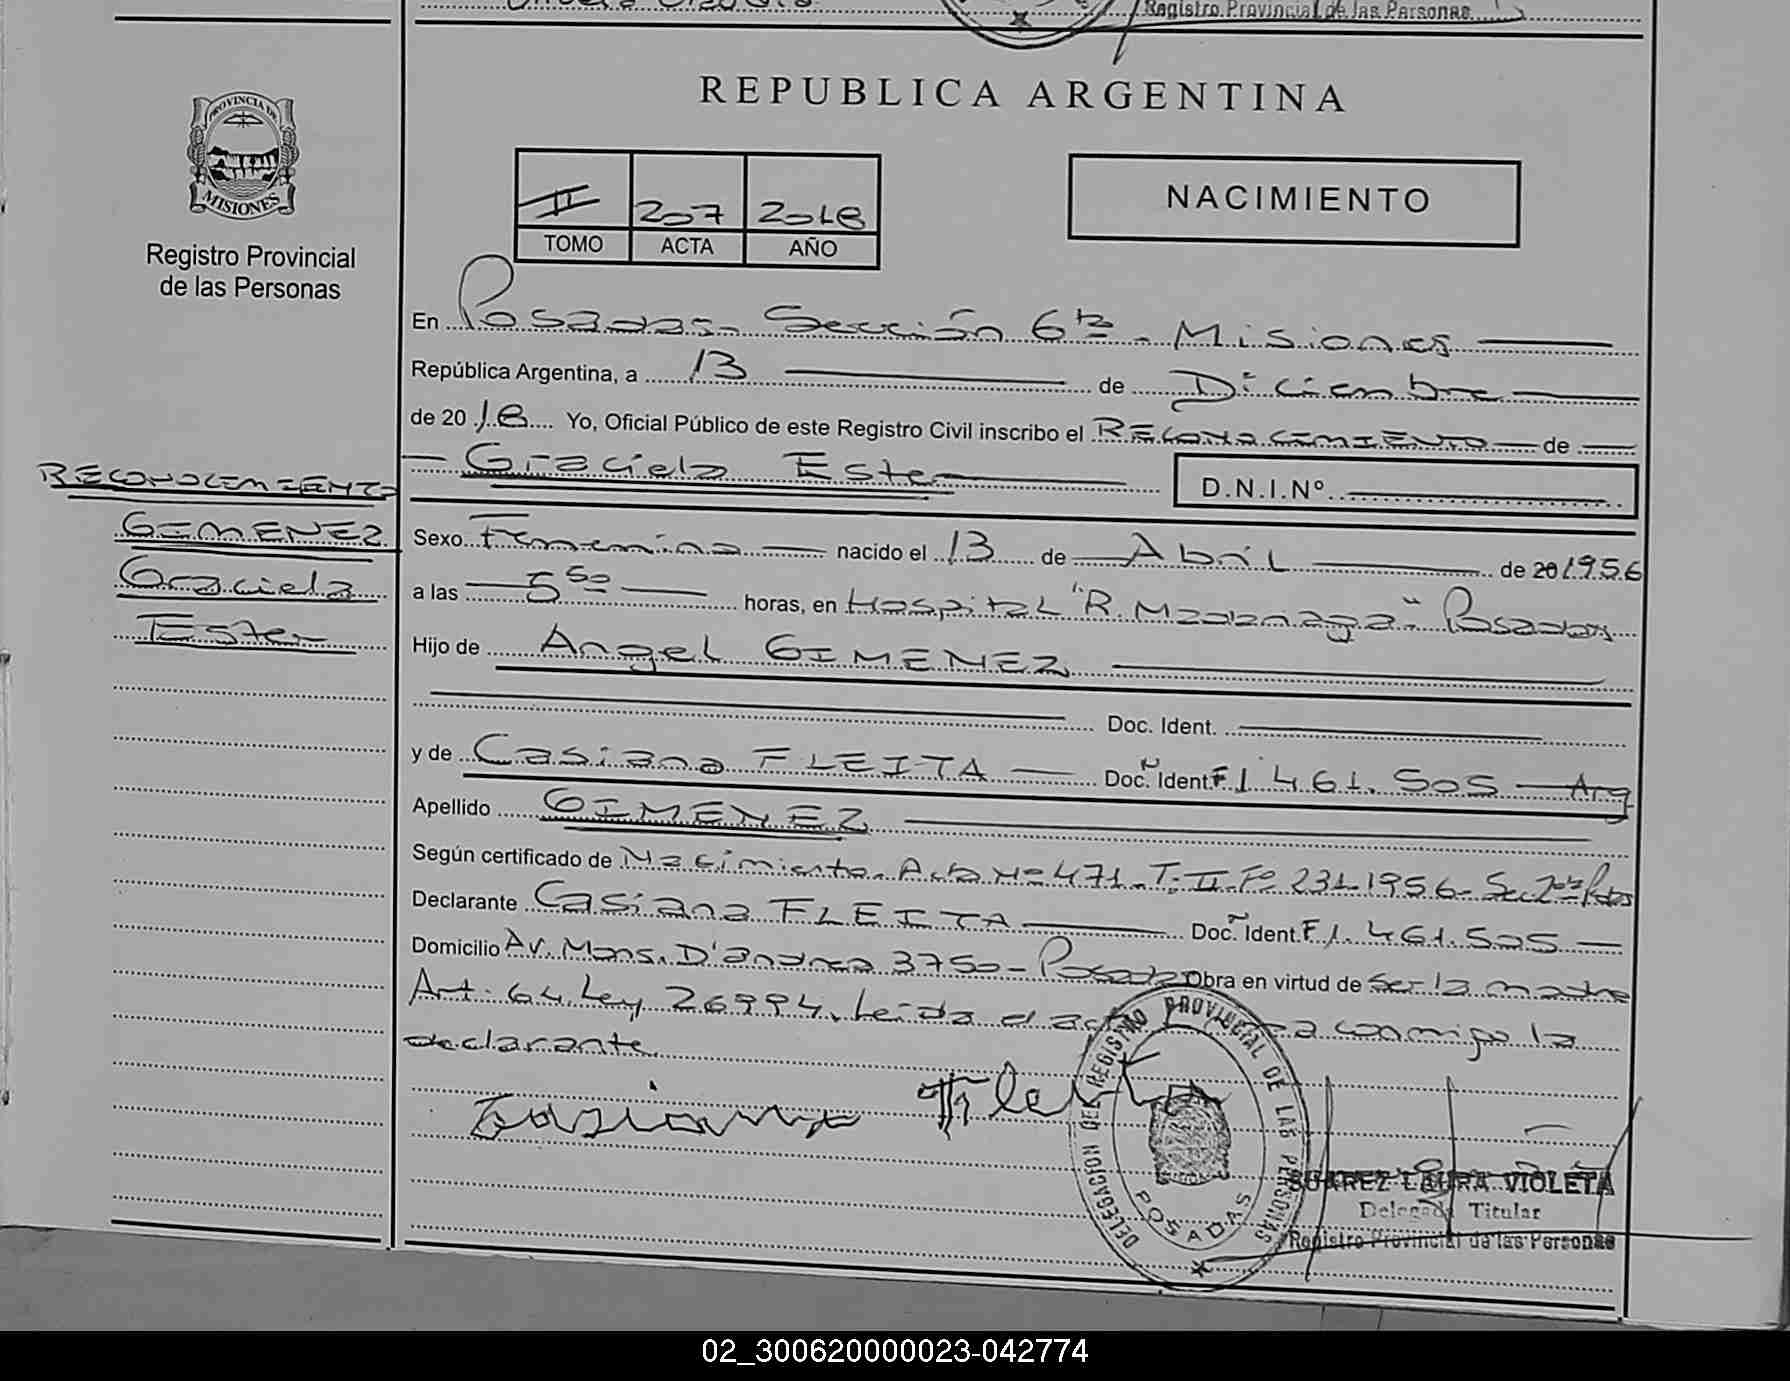 Registro Provincial de las Personas
REPUBLICA ARGENTINA
PROVINCIA DE
MISIONES
Registro Provincial
de las Personas
II 207 2018
TOMO ACTA AÑO
NACIMIENTO
En Posadas- Sección 6ta - Misiones
República Argentina, a 13 de Diciembre
de 2018 Yo, Oficial Público de este Registro Civil inscribo el RECONOCIMIENTO de
Graciela Ester D.N.I.Nº
RECONOCIMIENTO
GIMENEZ
Graciela
Ester
Sexo Femenino nacido el 13 de Abril de 20 1956
a las 5 50 horas, en Hospital "R. Madariaga" Posadas
Hijo de Angel GIMENEZ
Doc. Ident.
y de Casiana FLEITA Doc. Ident. F 1.461.505 Arg
Apellido GIMENEZ
Según certificado de Nacimiento. Acta Nº 471. T: II. Fº 231-1956- Sec 2da Pdas
Declarante Casiana FLEITA Doc. Ident. F 1.461.505
Domicilio Av. Mons. D'andrea 3750 - Posadas Obra en virtud de ser la madre
Art. 64. Ley 26994. Leída el acta conmigo la
declarante
Casiana Fleita
DELEGACION DEL REGISTRO PROVINCIAL DE LAS PERSONAS
POSADAS
SUAREZ LAURA VIOLETA
Delegada Titular
Registro Provincial de las Personas
02_300620000023-042774